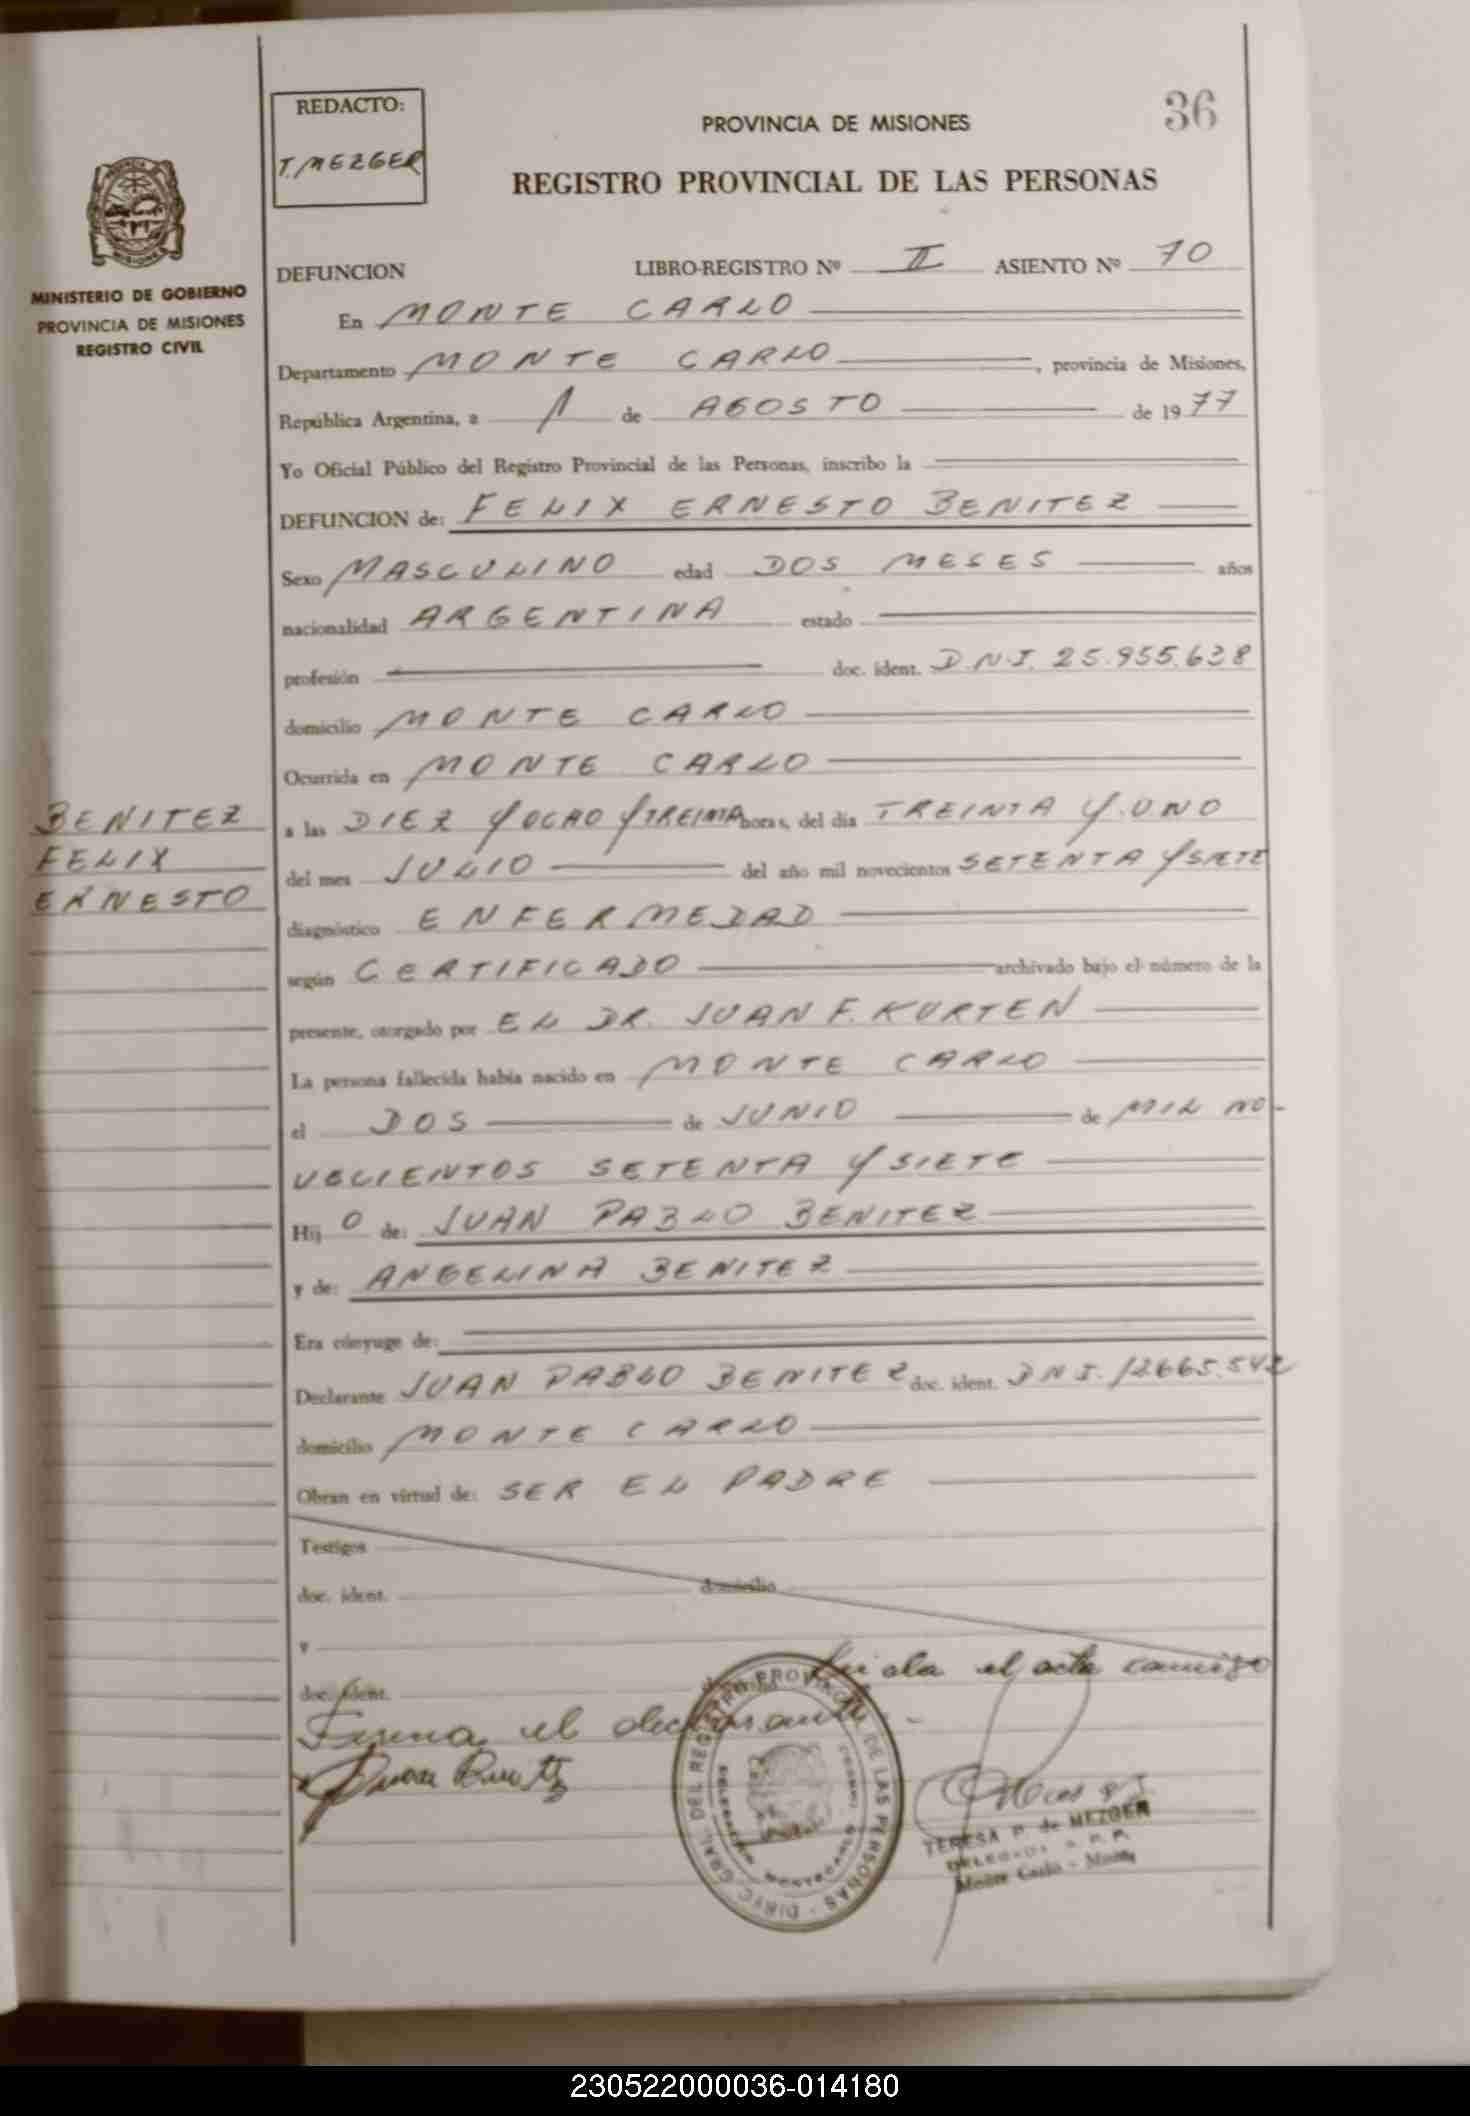 REDACTO:
T. MEZGER
36
PROVINCIA DE MISIONES
REGISTRO PROVINCIAL DE LAS PERSONAS
MINISTERIO DE GOBIERNO
PROVINCIA DE MISIONES
REGISTRO CIVIL
DEFUNCION LIBRO-REGISTRO Nº II ASIENTO Nº 70
En MONTE CARLO
Departamento MONTE CARLO, provincia de Misiones,
República Argentina, a 1 de AGOSTO de 1977
Yo Oficial Público del Registro Provincial de las Personas, inscribo la
DEFUNCION de: FELIX ERNESTO BENITEZ
Sexo MASCULINO edad DOS MESES años
nacionalidad ARGENTINA estado
profesión doc. ident. D.N.I. 25.955.638
domicilio MONTE CARLO
Ocurrida en MONTE CARLO
BENITEZ
FELIX
ERNESTO
a las DIEZ Y OCHO Y TREINTA horas, del día TREINTA Y UNO
del mes JULIO del año mil novecientos SETENTA Y SIETE
diagnóstico ENFERMEDAD
según CERTIFICADO archivado bajo el número de la
presente, otorgado por EL DR. JUAN F. KURTEN
La persona fallecida había nacido en MONTE CARLO
el DOS de JUNIO de MIL NO-
VECIENTOS SETENTA Y SIETE
Hij O de: JUAN PABLO BENITEZ
y de: ANGELINA BENITEZ
Era cónyuge de:
Declarante JUAN PABLO BENITEZ doc. ident. D.N.I. 12665.542
domicilio MONTE CARLO
Obran en virtud de: SER EL PADRE
Testigos
doc. ident. domicilio
y
doc. ident.
Leida el acta conmigo
Firma el declarante.-
Juan Benitez
DIREC. GRAL. DEL REGISTRO PROVINCIAL DE LAS PERSONAS
DELEGACION MONTECARLO
TERESA P. de MEZGER
Monte Carlo - Mnes.
230522000036-014180